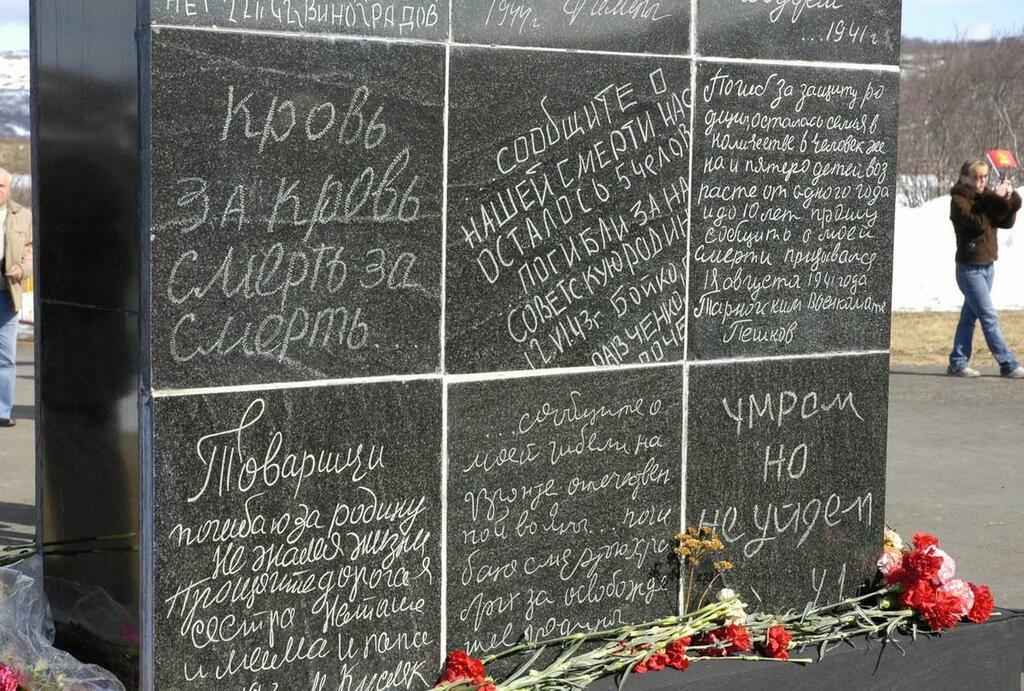 НЕТ 22.II.42, ВИНОГРАДОВ
1944г.
...1941г
Кровь
за кровь
смерть за
смерть....
СООБЩИТЕ О
НАШЕЙ СМЕРТИ НАС
ОСТАЛОСЬ 5 ЧЕЛОВ
ПОГИБЛИ ЗА НА
СОВЕТСКУЮ РОДИН
12.VI.43г. БОЙКО,
ПОЧЕ
Погиб за защиту ро
дины, осталась семья в
количестве 6 человек же
на и пятеро детей воз
расте от одного года
и до 10 лет прошу
сообщить о моей
смерти призывался
18 августа 1941 года
Военкомате
Пешков
Товарищи
погибаю за родину
не жалея жизни
Прощайте дорогая
сестра Наташа
и мама и папа
Кисляк
...сообщите о
моей гибели на
фронте отечествен
ной войны... поги
баю смертью хра
брых за освобожде
ние родины
УМРЕМ
НО
не уйдем